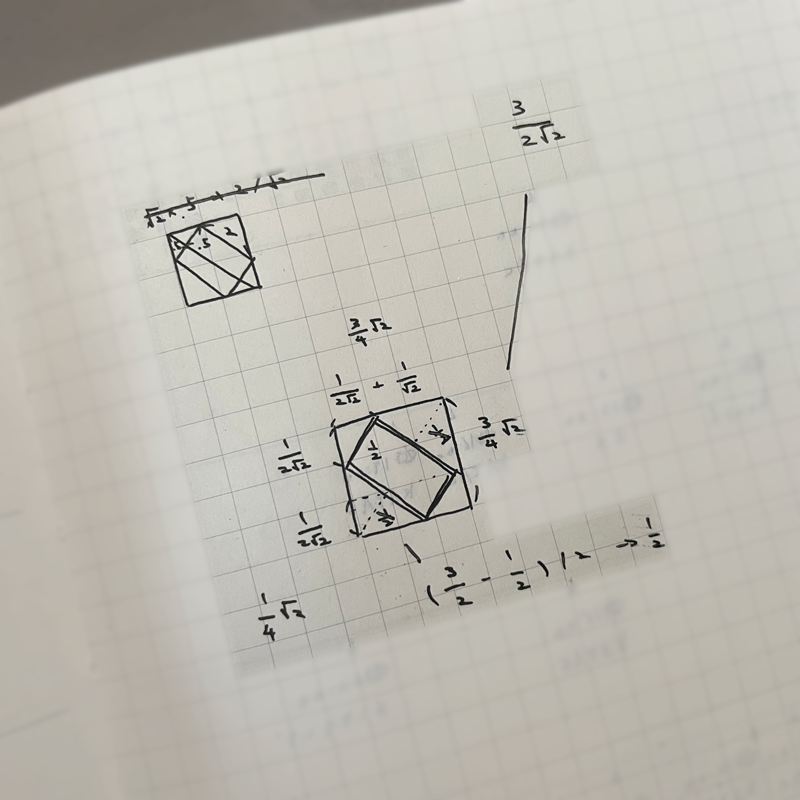 3/(2√2)
√2 × .5 + 2/√2
.5 .5 2
3/4 √2
1/(2√2) + 1/√2
1/(2√2) 1/2 3/4 √2
1/(2√2)
(3/2 - 1/2) / 2 → 1/2
1/4 √2